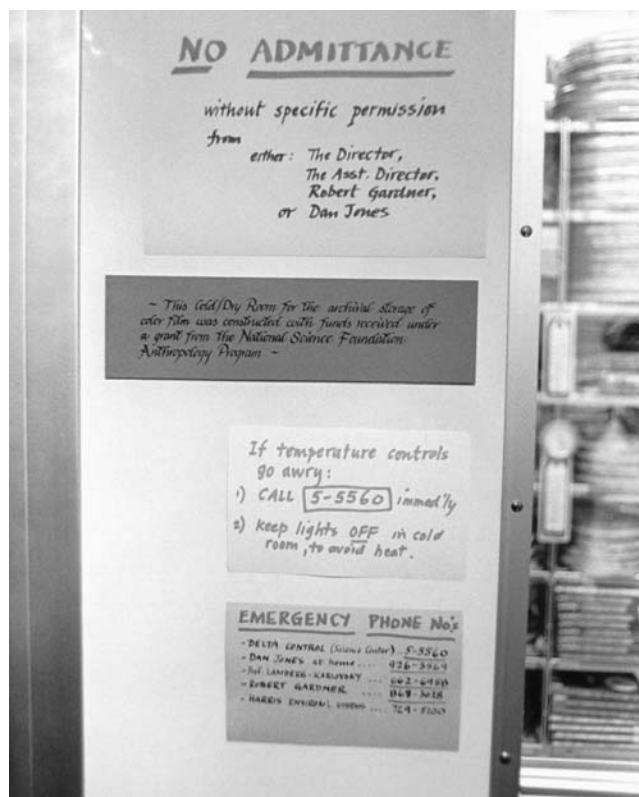 NO ADMITTANCE
without specific permission
from
either: The Director,
The Asst. Director,
Robert Gardner,
or Dan Jones
~ This Cold/Dry Room for the archival storage of
color film was constructed with funds received under
a grant from the National Science Foundation
Anthropology Program ~
If temperature controls
go awry:
1) CALL 5-5560 immed'ly
2) keep lights OFF in cold
room, to avoid heat.
EMERGENCY PHONE No's
- DELTA CONTROL (Science Center) 5-5560
- DAN JONES at home .... 926-3969
- Prof. LAMBERG-KARLOVSKY .... 662-6958
- ROBERT GARDNER .... 868-3028
- HARRIS ENVIRON'L .... 729-5100